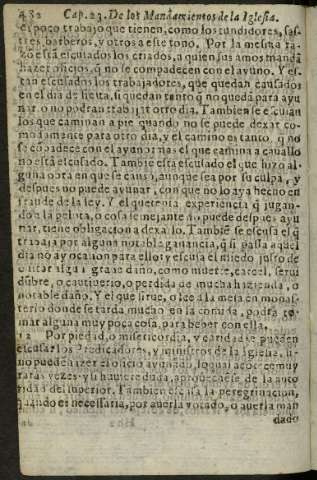 482 Cap. 23. De los Mandamientos de la Iglesia.
el poco trabajo que tienen, como los tundidores, sas-
tres, barberos, y otros a este tono. Por la mesma ra-
zō està escusados los criados, a quien sus amos manda
hazer oficios, q̃ no se compadecen con el ayuno. Y es-
tan escusados los trabajadores, que quedan cansados
en el dia de fiesta, si quedan tanto q̃ no queda para ayu
nar, o no podran trabajar otro dia. Tambien se escusan
los que caminan a pie quando no se puede dexar co-
modamente para otro dia, y el camino es tanto, q̃ no
se cōpadece con el ayuno: mas el que camina a cauallo
no està escusado. Tambiē està escusado el que hizo al-
guna obra en que se cansò, aunque sea por su culpa, y
despues no puede ayunar, con que no lo aya hecho en
fraude de la ley. Y el que tenia experiencia q̃ jugan-
do a la pelota, o cosa semejante no puede despues ayu
nar, tiene obligacion a dexallo. Tambiē se escusa el q̃
trabaja por alguna notable ganancia, q̃ si passa aquel
dia no ay ocasion para ello: y escusa el miedo justo de
euitar algū graue daño, como muerte, carcel, serui
dūbre, o cautiuerio, o perdida de mucha hazienda, o
notable daño. Y el que sirue, o lee a la mesa en monas-
terio donde se tarda mucho en la comida, podrà to-
mar alguna muy poca cosa, para beber con ella.
12 Por piedad, o misericordia, y caridad se pueden
escusar los Predicadores, y ministros de la Iglesia, si
no pueden hazer el oficio ayunando, lo qual acōtece muy
raras vezes: y si huuiere duda, aprouechese de la auto
ridad del superior. Tambien escusa la peregrinacion,
quando es necessaria, por auerla votado, o auerla man
dado